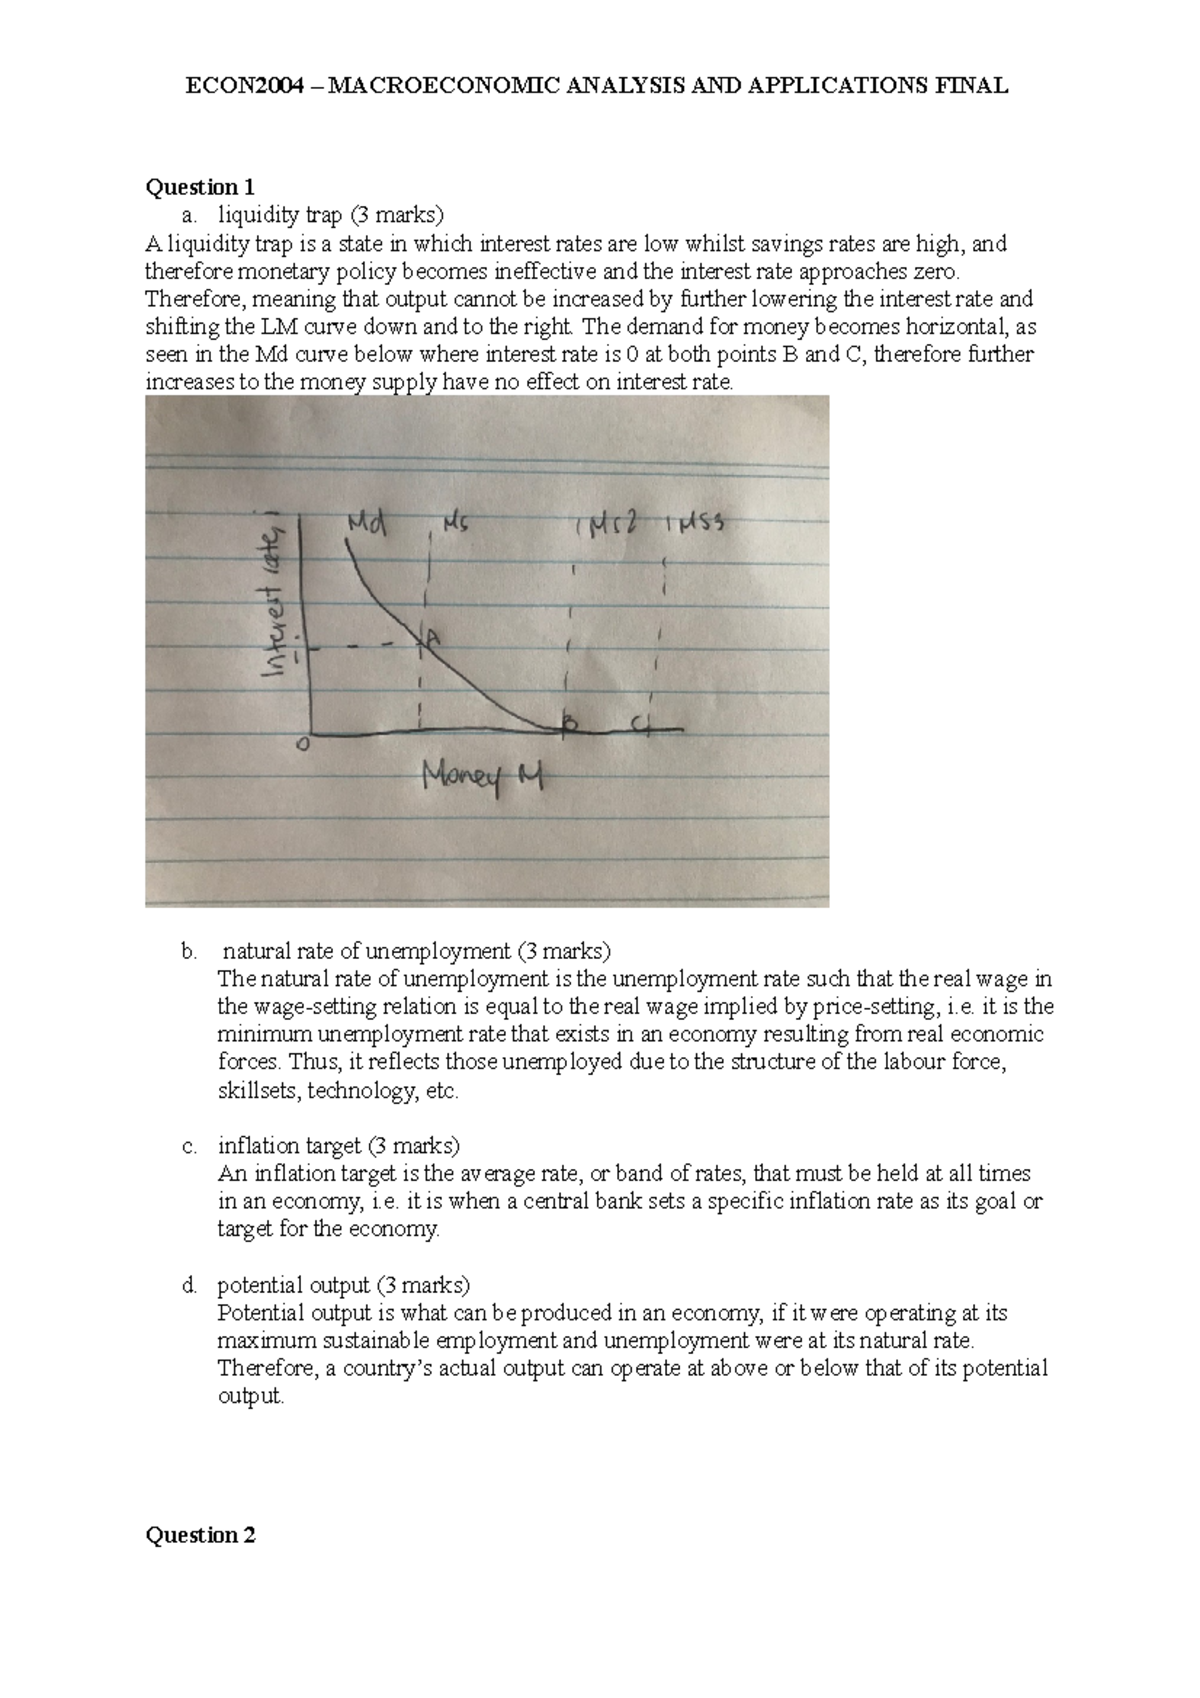 ECON2004 – MACROECONOMIC ANALYSIS AND APPLICATIONS FINAL
Question 1
a. liquidity trap (3 marks)
A liquidity trap is a state in which interest rates are low whilst savings rates are high, and
therefore monetary policy becomes ineffective and the interest rate approaches zero.
Therefore, meaning that output cannot be increased by further lowering the interest rate and
shifting the LM curve down and to the right. The demand for money becomes horizontal, as
seen in the Md curve below where interest rate is 0 at both points B and C, therefore further
increases to the money supply have no effect on interest rate.
Interest rate, i
Md Ms Ms2 MS3
A
B C
0
Money M
b. natural rate of unemployment (3 marks)
The natural rate of unemployment is the unemployment rate such that the real wage in
the wage-setting relation is equal to the real wage implied by price-setting, i.e. it is the
minimum unemployment rate that exists in an economy resulting from real economic
forces. Thus, it reflects those unemployed due to the structure of the labour force,
skillsets, technology, etc.
c. inflation target (3 marks)
An inflation target is the average rate, or band of rates, that must be held at all times
in an economy, i.e. it is when a central bank sets a specific inflation rate as its goal or
target for the economy.
d. potential output (3 marks)
Potential output is what can be produced in an economy, if it were operating at its
maximum sustainable employment and unemployment were at its natural rate.
Therefore, a country’s actual output can operate at above or below that of its potential
output.
Question 2